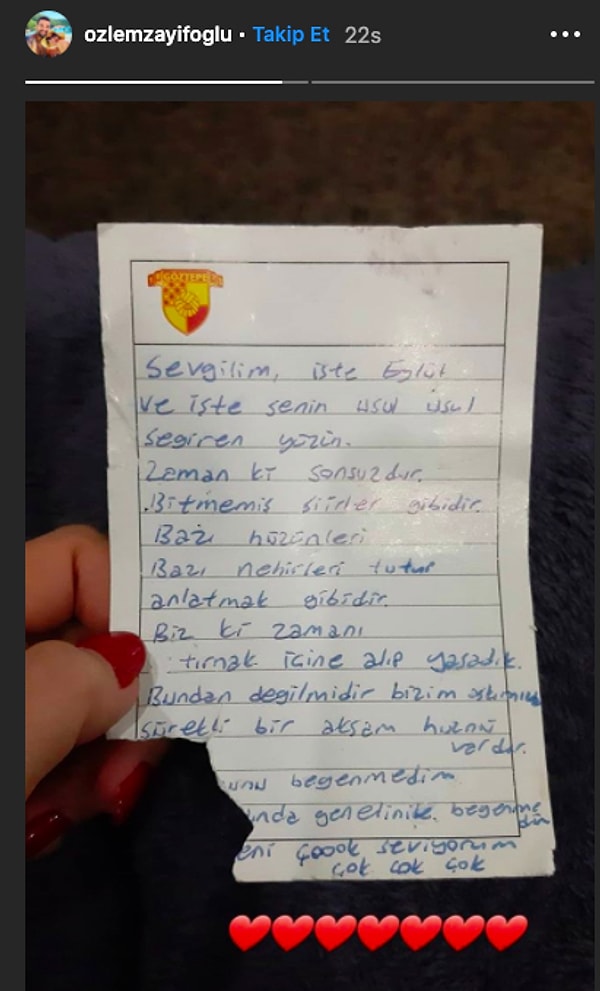 ozlemzayifoglu • Takip Et 22s
GÖZTEPE
Sevgilim, işte Eylül
ve işte senin usul usul
segiren yüzün.
Zaman ki sonsuzdur.
Bitmemiş şiirler gibidir.
Bazı hüzünleri
Bazı nehirleri tutup
anlatmak gibidir.
Biz ki zamanı
tırnak içine alıp yaşadık.
Bundan degilmidir bizim aşkımız
sürekli bir akşam hüznü
vardır.
begenmedim
genelinike begenme
dim
eni çoook seviyorum
çok çok çok